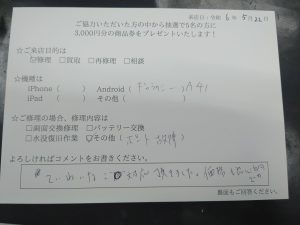 来店日：令和 6 年 5 月 22 日
ご協力いただいた方の中から抽選で5名の方に
3,000円分の商品券をプレゼントいたします！
☆ご来店目的は
☑修理 □買取 □再修理 □相談
☆機種は
iPhone（ ） Android（ ギャラクシー A41
iPad（ ） その他（ ）
☆ご修理の場合、修理内容は
□画面交換修理 □バッテリー交換
□水没復旧作業 ☑その他（ 故障）
よろしければコメントをお書きください。
ていねいな ご対応 頂きました。価格も
裏面もご回答ください。